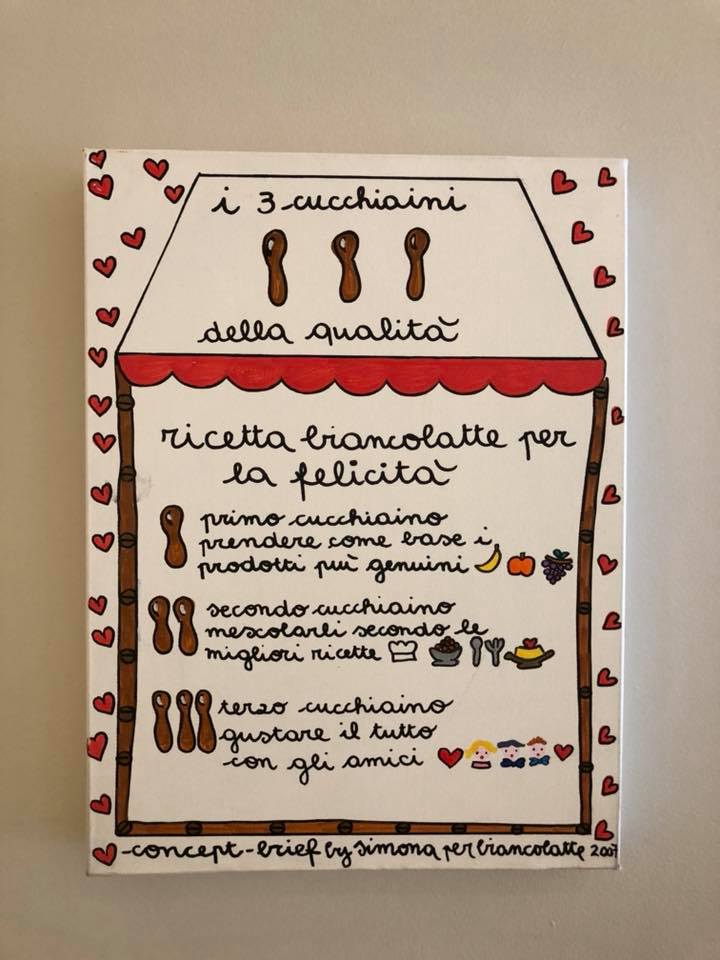 i 3 cucchiaini
della qualità
ricetta biancolatte per
la felicità
primo cucchiaino
prendere come base i
prodotti più genuini
secondo cucchiaino
mescolarli secondo le
migliori ricette
terzo cucchiaino
gustare il tutto
con gli amici
-concept-brief by simona per biancolatte 2007